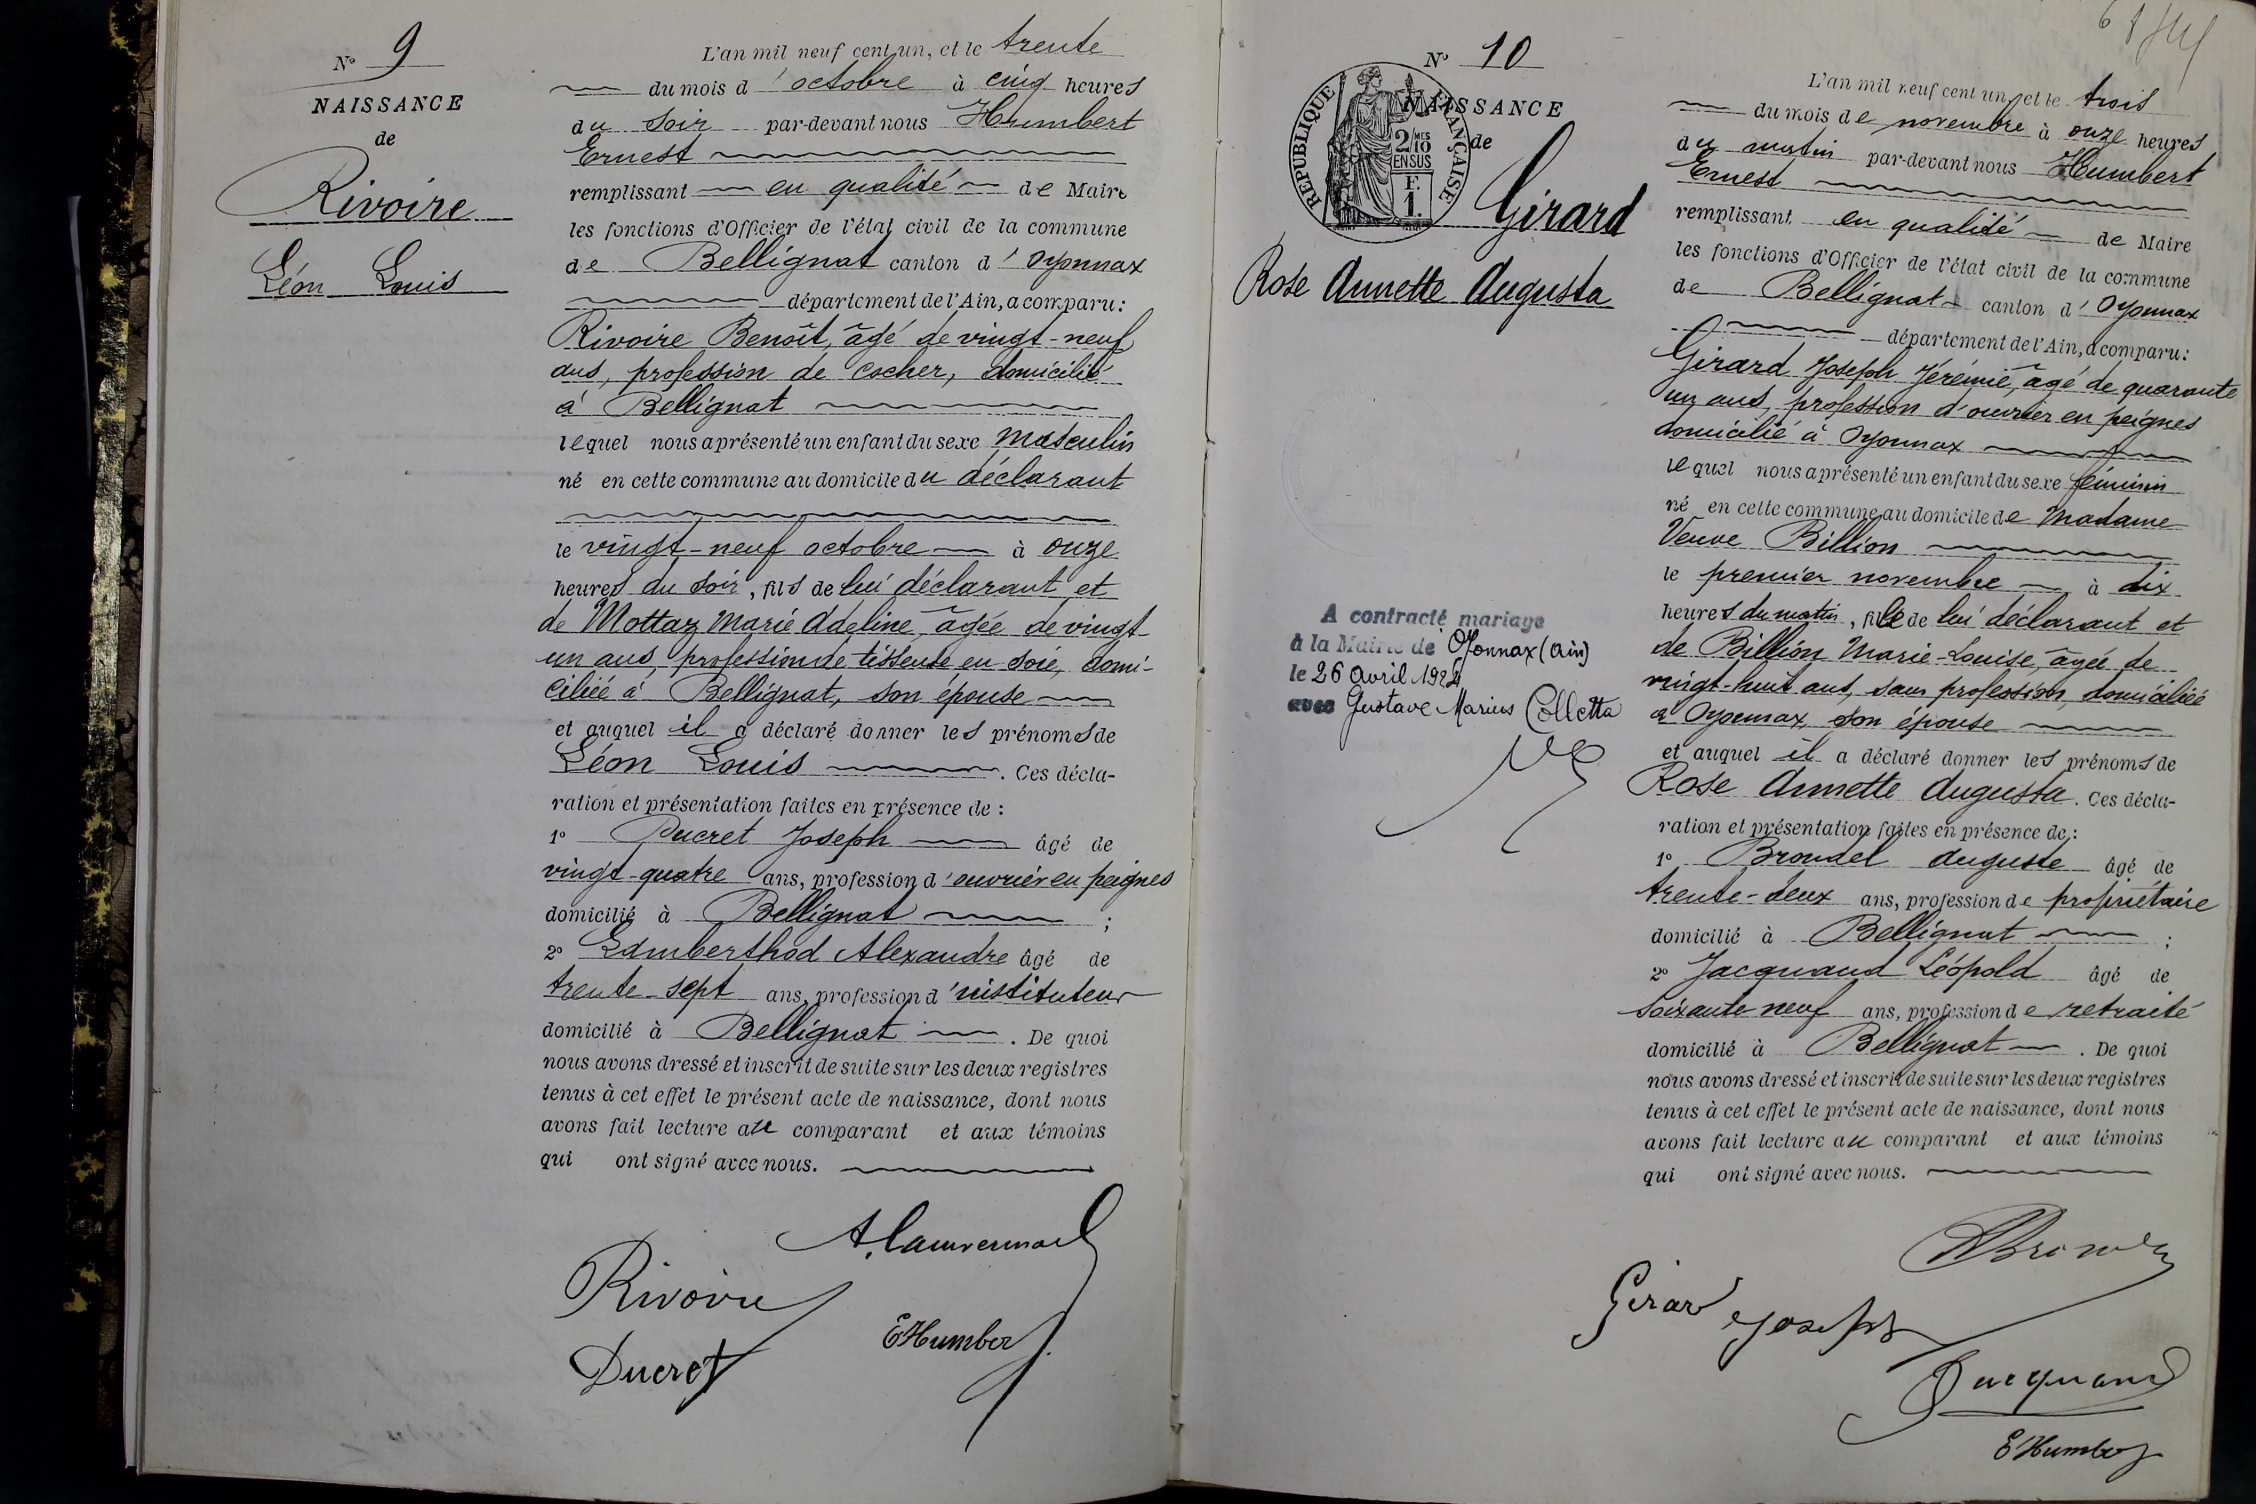 N° 9
NAISSANCE
de
Rivoire
Léon Louis
L'an mil neuf cent un, et le trente
du mois d'octobre à cinq heures
du soir par-devant nous Humbert
Ernest
remplissant en qualité de Maire
les fonctions d'Officier de l'état civil de la commune
de Bellignat canton d'Oyonnax
département de l'Ain, a comparu :
Rivoire Benoît, âgé de vingt-neuf
ans, profession de cocher, domicilié
à Bellignat
lequel nous a présenté un enfant du sexe masculin
né en cette commune au domicile du déclarant
le vingt-neuf octobre à onze
heures du soir, fils de lui déclarant et
de Mottaz Marie Adeline, âgée de vingt-
un ans, profession de tisseuse en soie, domi-
ciliée à Bellignat, son épouse
et auquel il a déclaré donner les prénoms de
Léon Louis. Ces décla-
ration et présentation faites en présence de :
1° Ducret Joseph âgé de
vingt-quatre ans, profession d'ouvrier en peignes
domicilié à Bellignat ;
2° Lamberthod Alexandre âgé de
trente-sept ans, profession d'instituteur
domicilié à Bellignat. De quoi
nous avons dressé et inscrit de suite sur les deux registres
tenus à cet effet le présent acte de naissance, dont nous
avons fait lecture au comparant et aux témoins
qui ont signé avec nous.
Rivoire
EHumbert
Ducret
N° 10
REPUBLIQUE FRANÇAISE
2/10 MES
EN SUS
F.
1.
NAISSANCE
de
Girard
Rose Annette Augusta
A contracté mariage
à la Mairie de Oyonnax (Ain)
le 26 avril 192
avec Gustave Marius Colletta
L'an mil neuf cent un, et le trois
du mois de novembre à onze heures
du matin par-devant nous Humbert
Ernest
remplissant en qualité de Maire
les fonctions d'Officier de l'état civil de la commune
de Bellignat canton d'Oyonnax
département de l'Ain, a comparu :
Girard Joseph Jérémie, âgé de quarante
un ans, profession d'ouvrier en peignes
domicilié à Oyonnax
lequel nous a présenté un enfant du sexe féminin
né en cette commune au domicile de Madame
Veuve Billion
le premier novembre à dix
heures du matin, fille de lui déclarant et
de Billion Marie-Louise, âgée de
vingt-huit ans, sans profession, domiciliée
à Oyonnax, son épouse
et auquel il a déclaré donner les prénoms de
Rose Annette Augusta. Ces décla-
ration et présentation faites en présence de :
1° Brondel Auguste âgé de
trente-deux ans, profession de propriétaire
domicilié à Bellignat ;
2° Jacquand Léopold âgé de
soixante neuf ans, profession de retraité
domicilié à Bellignat. De quoi
nous avons dressé et inscrit de suite sur les deux registres
tenus à cet effet le présent acte de naissance, dont nous
avons fait lecture au comparant et aux témoins
qui ont signé avec nous.
Girard Joseph
Jacquand
EHumbert